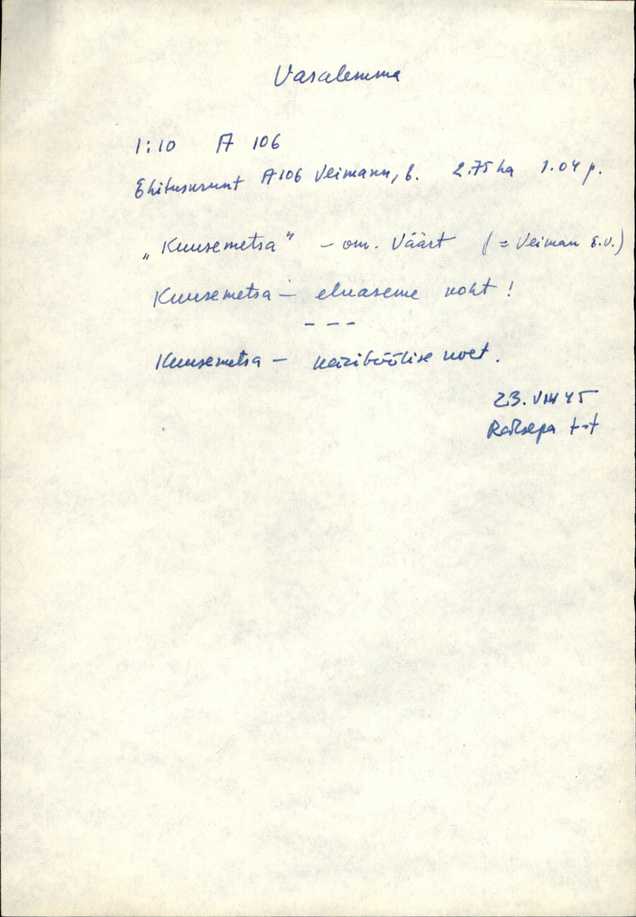 Vasalemma
1:10 A 106
Ehituskrunt A106 Veimann, E. 2.75 ha 1.04 p.
„Kuusemetsa" – om. Väärt (= Veiman E.V.)
Kuusemetsa – eluaseme koht!
– – –
Kuusemetsa – käsitöölise koht.
23. VIII 45